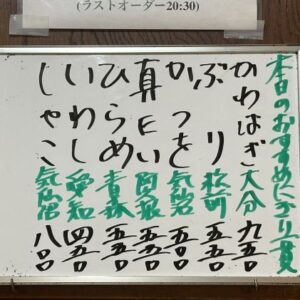 (ラストオーダー20:30)
本日のおすすめにぎり一貫
かわはぎ 大分 九五〇
ぶり 五五〇
かつを 気仙沼 五五〇
真だい 五五〇
ひらめ 青森 五五〇
いわし 愛知 四五〇
しゃこ 八〇〇